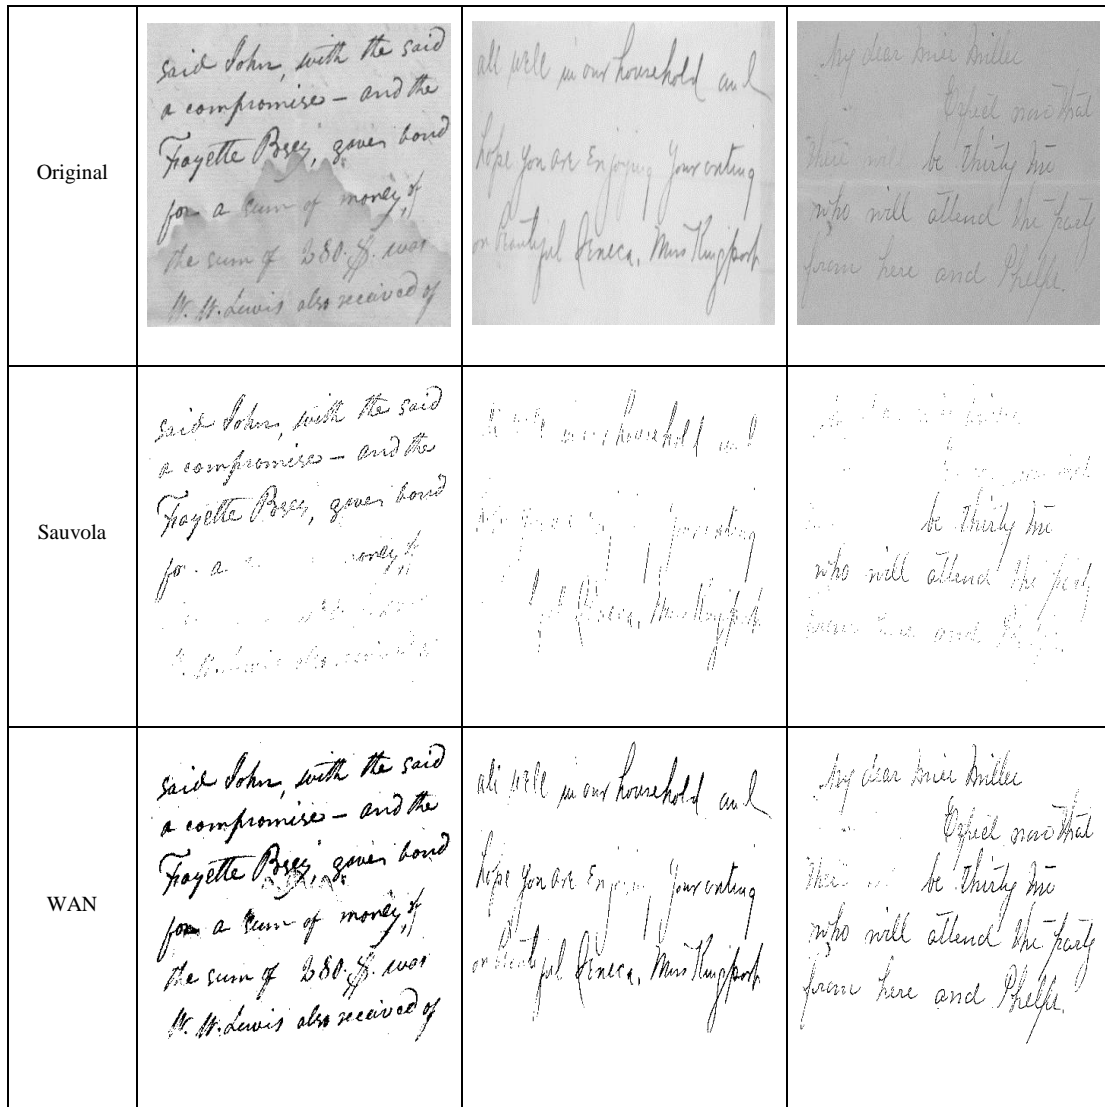 Original
said John, with the said
a compromise – and the
Fayette gives bond
for a sum of money, of
the sum of 280. was
W. W. Lewis also received of
all well in our household and
hope you are Enjoying your outing
on beautiful Seneca. Miss Kingsport
My dear Miss Miller
Expect now that
there will be thirty
who will attend the party
from here and Phelps.
Sauvola
said John, with the said
a compromise – and the
Fayette gives bond
for a money, of
household
Seneca, Miss Kingsport
be thirty
who will attend the party
here and
WAN
said John, with the said
a compromise – and the
Fayette gives bond
for a sum of money, of
the sum of 280. was
W. W. Lewis also received of
all well in our household and
hope you are your outing
on Seneca. Miss Kingsport
My dear Miss Miller
Expect now that
be thirty
who will attend the party
from here and Phelps.